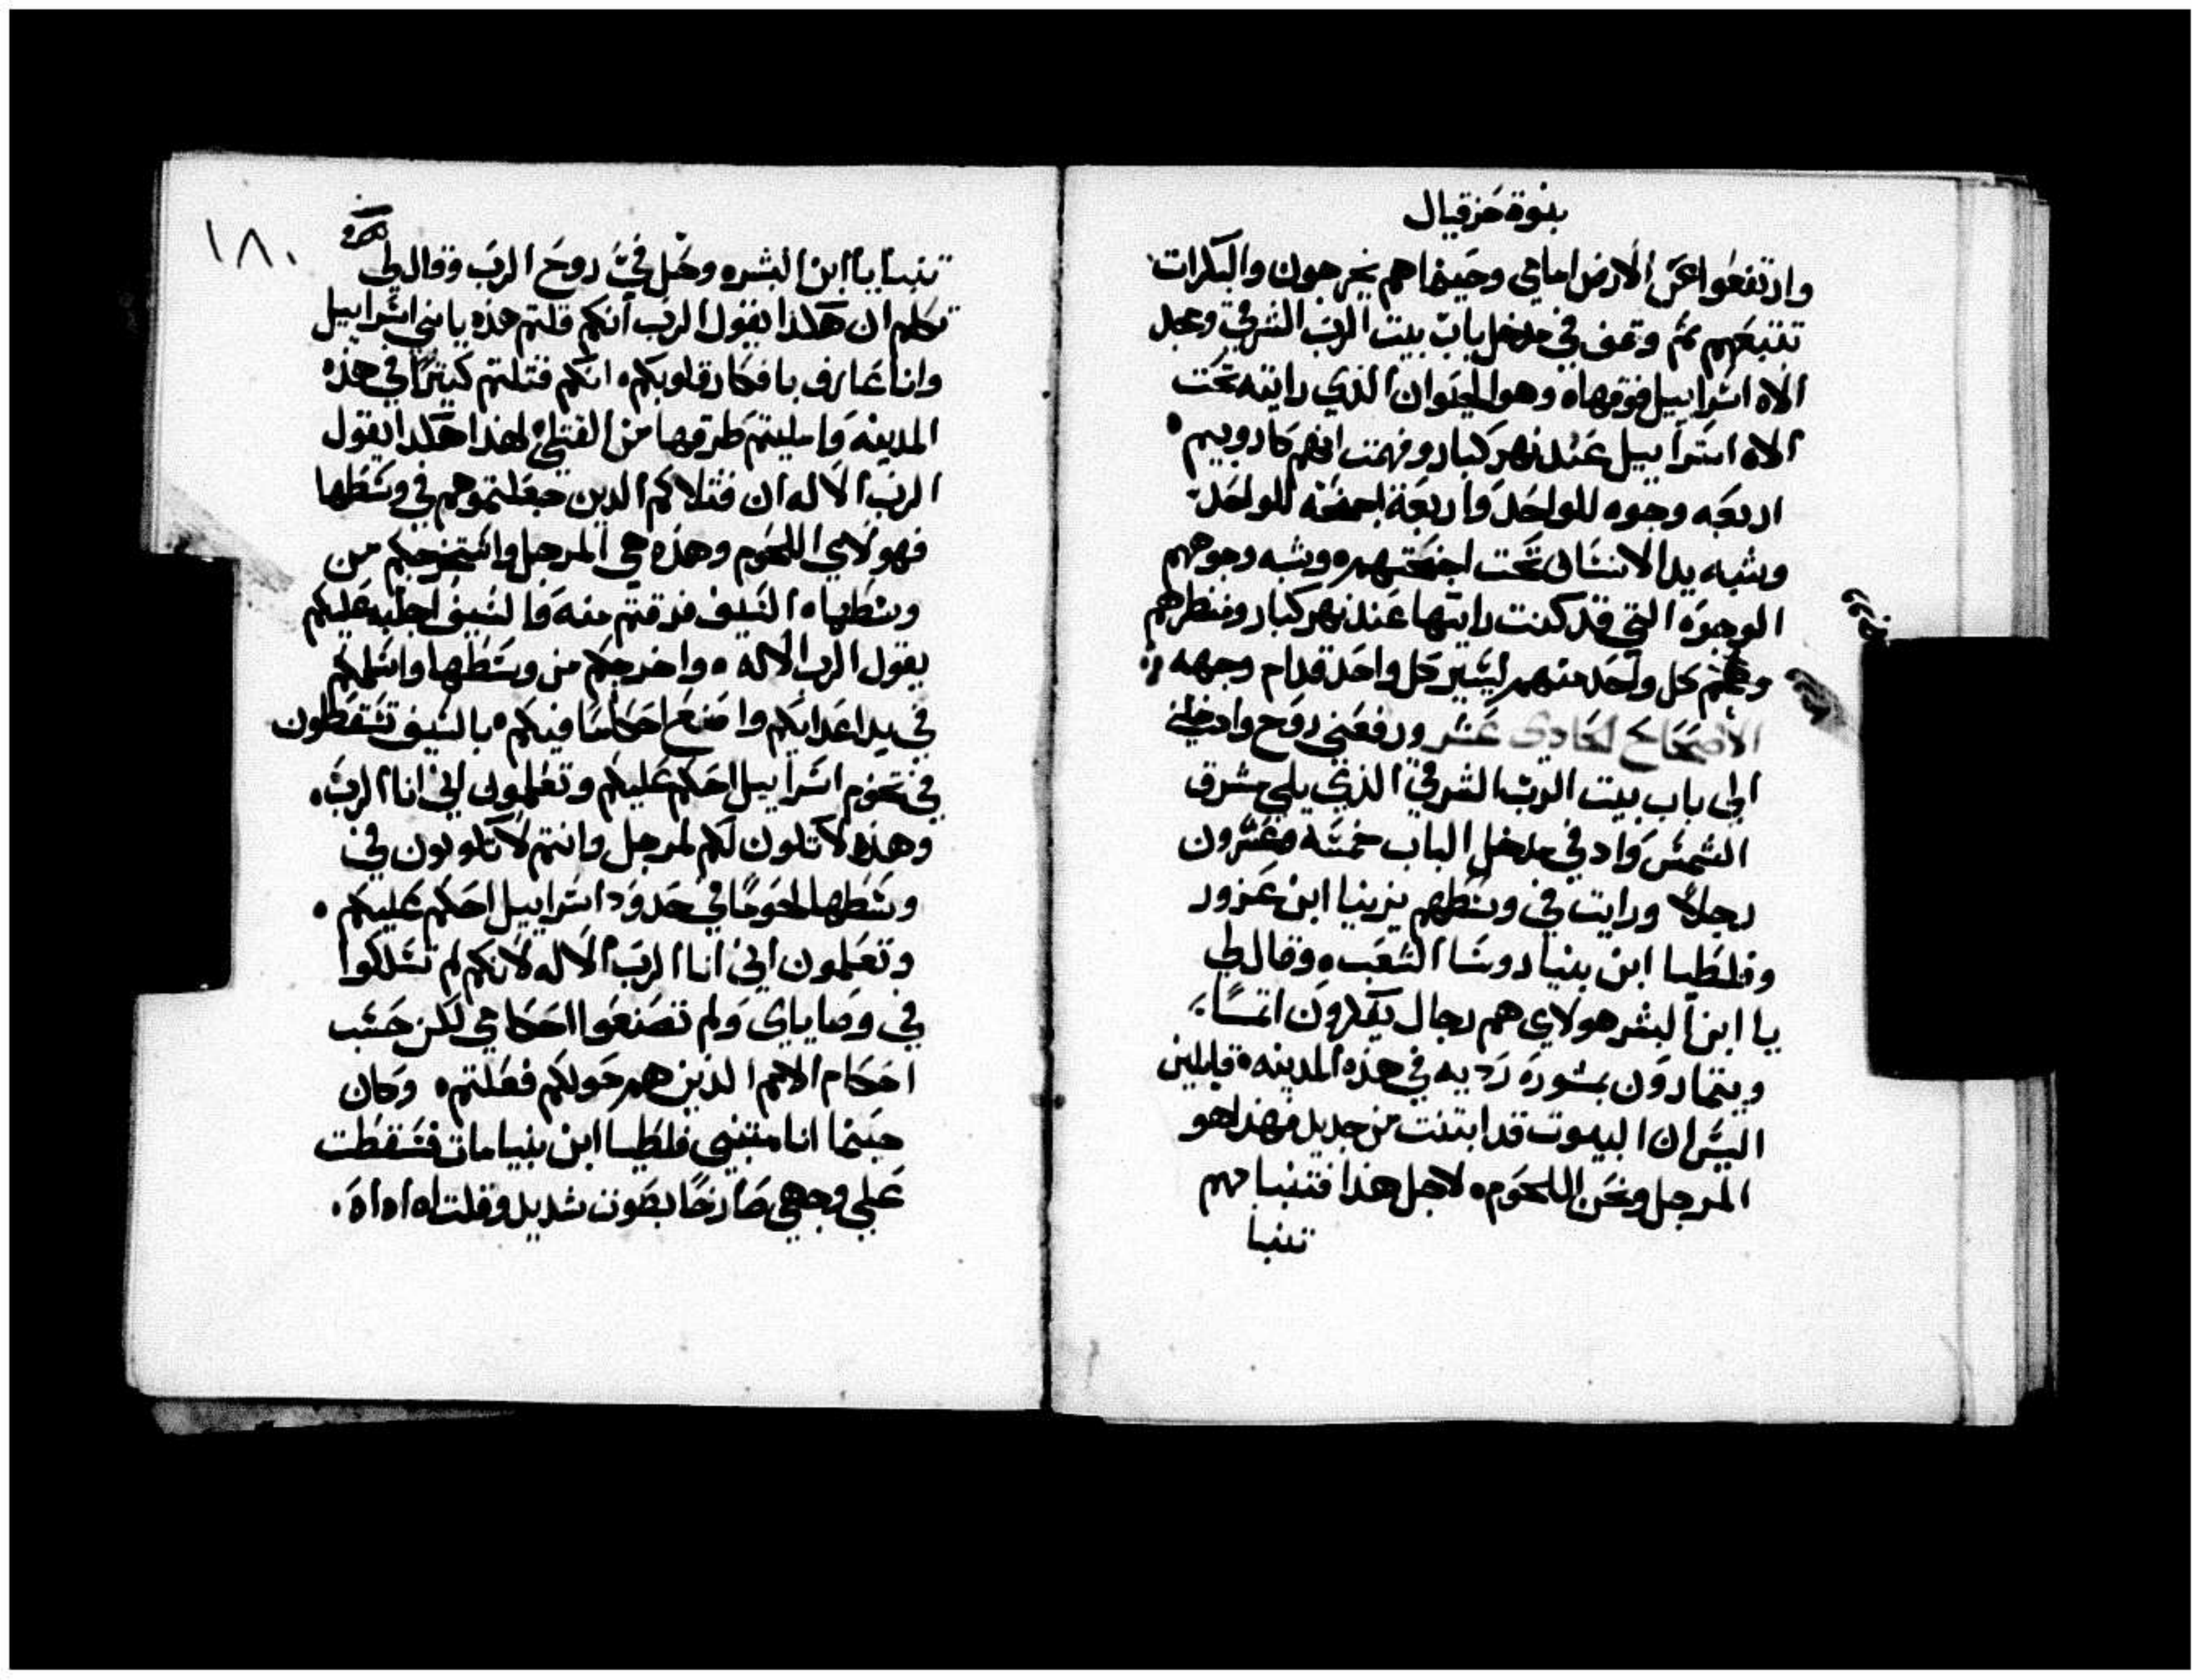 نبوة حزقيال
وارتفعوا عن الارض امامي وحينما هم يخرجون والبكرات
تتبعهم ثم وقف في مدخل باب بيت الرب الشرقي ومجد
الاه اسراييل فوقها٥ وهو الحيوان الذي رايته تحت
الاه اسراييل عند نهر كبار وفهمت انهم كاروبيم
اربعه وجوه للواحد واربعة اجنحه للواحد
وشبه يد الانسان تحت اجنحتهم٥ وشبه وجوههم
الوجوه التي قد كنت رايتها عند نهر كبار ومنظرهم
كل واحد منهم ليسير كل واحد قدام وجهه
الاصحاح الحادي عشر ورفعني روح وادخلني
الى باب بيت الرب الشرقي الذي يلي مشرق
الشمس واد في مدخل الباب خمسه وعشرون
رجلاً ورايت في وسطهم يزينيا ابن عزور
وفلطيا ابن بنيا روسا الشعب٥ وقال لي
يا ابن البشر هولاي هم رجال يفكرون اثمًا
ويتمارون بمشورة رديه في هذه المدينه٥ قايلين
اليس ان البيوت قد ابتنت من جديد فهذا هو
المرجل ونحن اللحوم٥ لاجل هذا فتنبا بهم
تنبا
١٨٠
تنبا يا ابن البشر٥ وحل فيّ روح الرب وقال لي
تكلم ان هكذا يقول الرب انكم قلتم هذه يا بني اسراييل
وانا عارف بافكار قلوبكم٥ انكم قتلتم كثيرًا في هذه
المدينه وامليتم طرقها من القتلي٥ لهذا هكذا يقول
الرب الاله ان قتلاكم الدين جعلتموهم في وسطها
فهولاي اللحوم وهذه هي المرجل واستخرجكم من
وسطها٥ السيف فرقتم منه والسيف اجلبه عليكم
يقول الرب الاله٥ واخرجكم من وسطها واسلمكم
في يد اعدايكم واصنع احكاما فيكم٥ بالسيف تسقطون
في تخوم اسراييل احكم عليكم وتعلمون اني انا الرب.
وهذه لا تكون لكم لمرجل وانتم لا تكونون في
وسطها لحومًا في حدود اسراييل احكم عليكم
وتعلمون اني انا الرب الاله لانكم لم تسلكوا
في وصاياي ولم تصنعوا احكامي لكن حسب
احكام الامم الذين هم حولكم فعلتم٥ وكان
حينما انا متنبي فلطيا ابن بنيا مات فسقطت
علي وجهي صارخًا بصوت شديد وقلت اه اه اه.